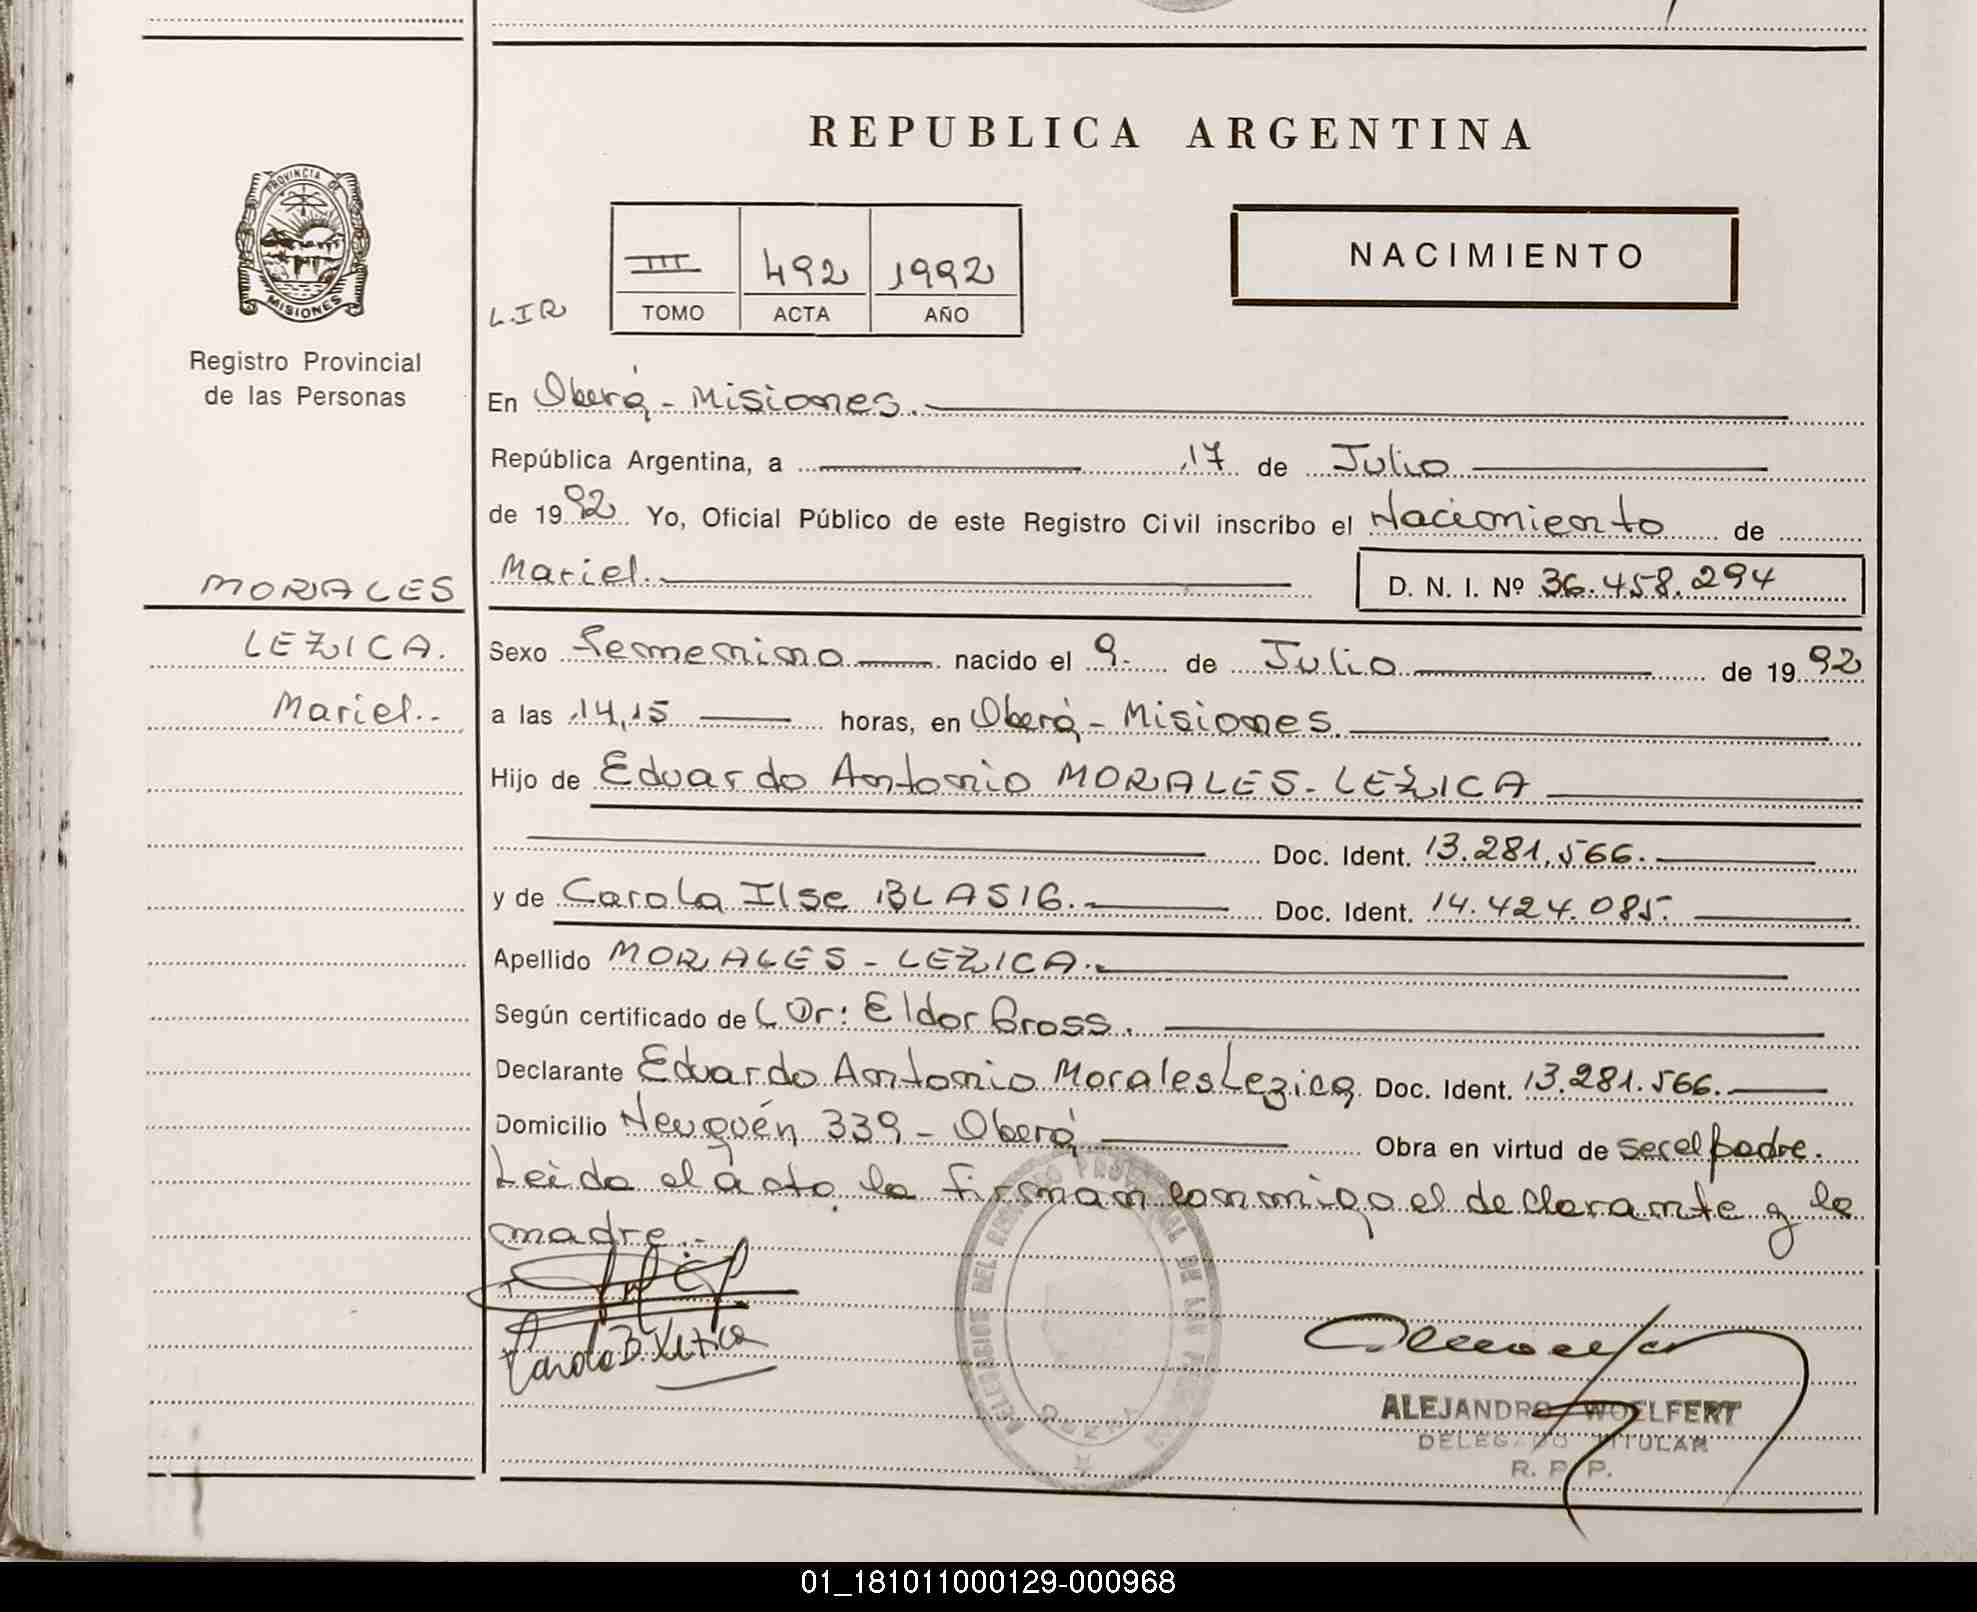 REPUBLICA ARGENTINA
PROVINCIA DE
MISIONES
Registro Provincial
de las Personas
III 492 1992
TOMO ACTA AÑO
NACIMIENTO
L.I.R
En Oberá - Misiones.
República Argentina, a 17 de Julio
de 1992 Yo, Oficial Público de este Registro Civil inscribo el Nacimiento de
Mariel. D. N. I. Nº 36.458.294
MORALES
LEZICA.
Mariel.-
Sexo Femenino nacido el 9. de Julio de 1992
a las 14,15 horas, en Oberá - Misiones.
Hijo de Eduardo Antonio MORALES-LEZICA
Doc. Ident. 13.281.566.
y de Carola Ilse BLASIG. Doc. Ident. 14.424.085.
Apellido MORALES - LEZICA.
Según certificado de Dr: Eldor Gross.
Declarante Eduardo Antonio Morales Lezica Doc. Ident. 13.281.566.
Domicilio Neuquén 339 - Oberá Obra en virtud de ser el padre.
Leida el acta, la firman conmigo el declarante y la
madre.-
Carola B.
DELEGACION DEL REGISTRO PROVINCIAL DE LAS PERSONAS
OBERA
ALEJANDRO WOELFERT
DELEGADO TITULAR
R. P. P.
01_181011000129-000968